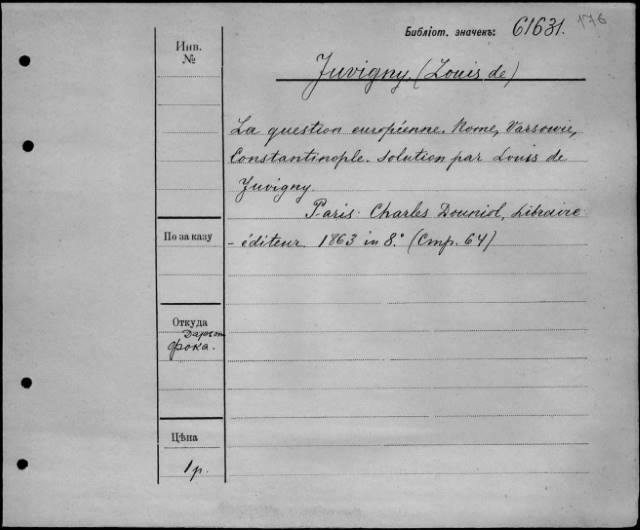 Библіот. значекъ: 61631. 176
Инв.
№
Juvigny (Louis de)
La question européenne. Rome, Varsovie,
Constantinople. Solution par Louis de
Juvigny.
Paris. Charles Douniol, Libraire
- éditeur. 1863 in 8.° (Стр. 64)
По заказу
Откуда
Даръ от
Фока.
Цѣна
1 р.